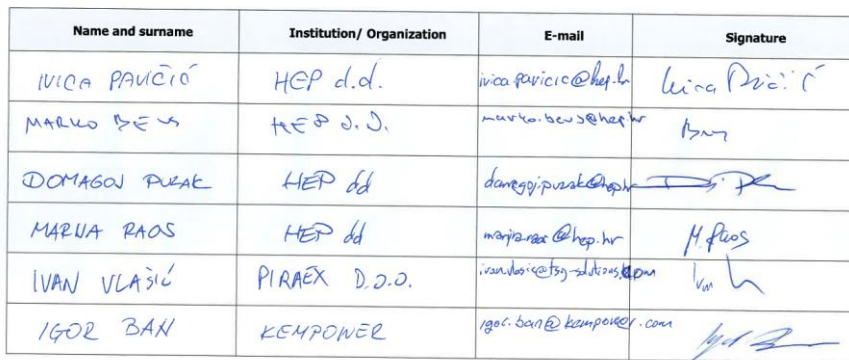 Name and surname Institution/ Organization E-mail Signature
IVICA PAVIČIĆ HEP d.d. ivica.pavicic@hep.hr
MARKO BEUS HEP d.d. marko.beus@hep.hr
DOMAGOJ PUZAK HEP dd domagoj.puzak@hep.hr
MARIJA RAOS HEP dd marija.raos@hep.hr M. Raos
IVAN VLAŠIĆ PIRAEX D.O.O.
IGOR BAN KEMPOWER igor.ban@kempower.com